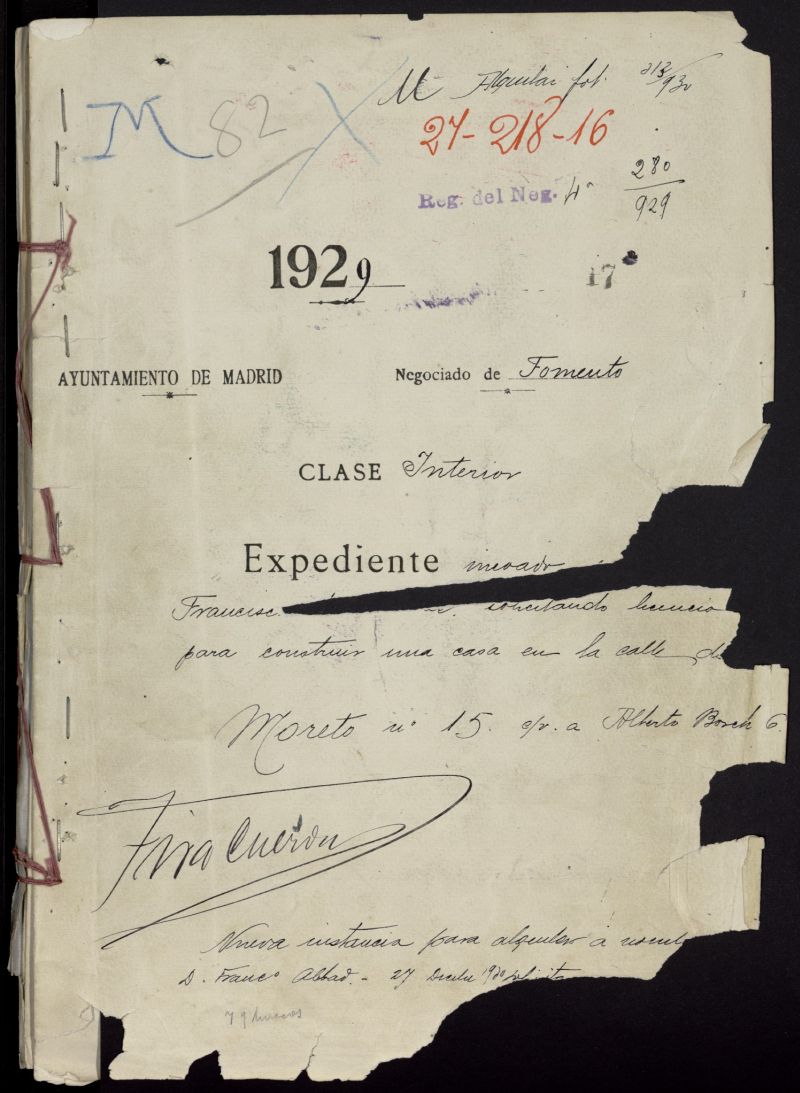 M 82
Alquilar
27-218-16
Reg. del Neg. 4º 280
929
1929
17
AYUNTAMIENTO DE MADRID
Negociado de Fomento
CLASE Interior
Expediente incoado
Francisc solicitando licencia
para construir una casa en la calle de
Moreto nº 15. c/v. a Alberto Bosch 6.
Nueva instancia para alquilar a nomb
D. Franco Abbad. - 27 Dicbre 1930